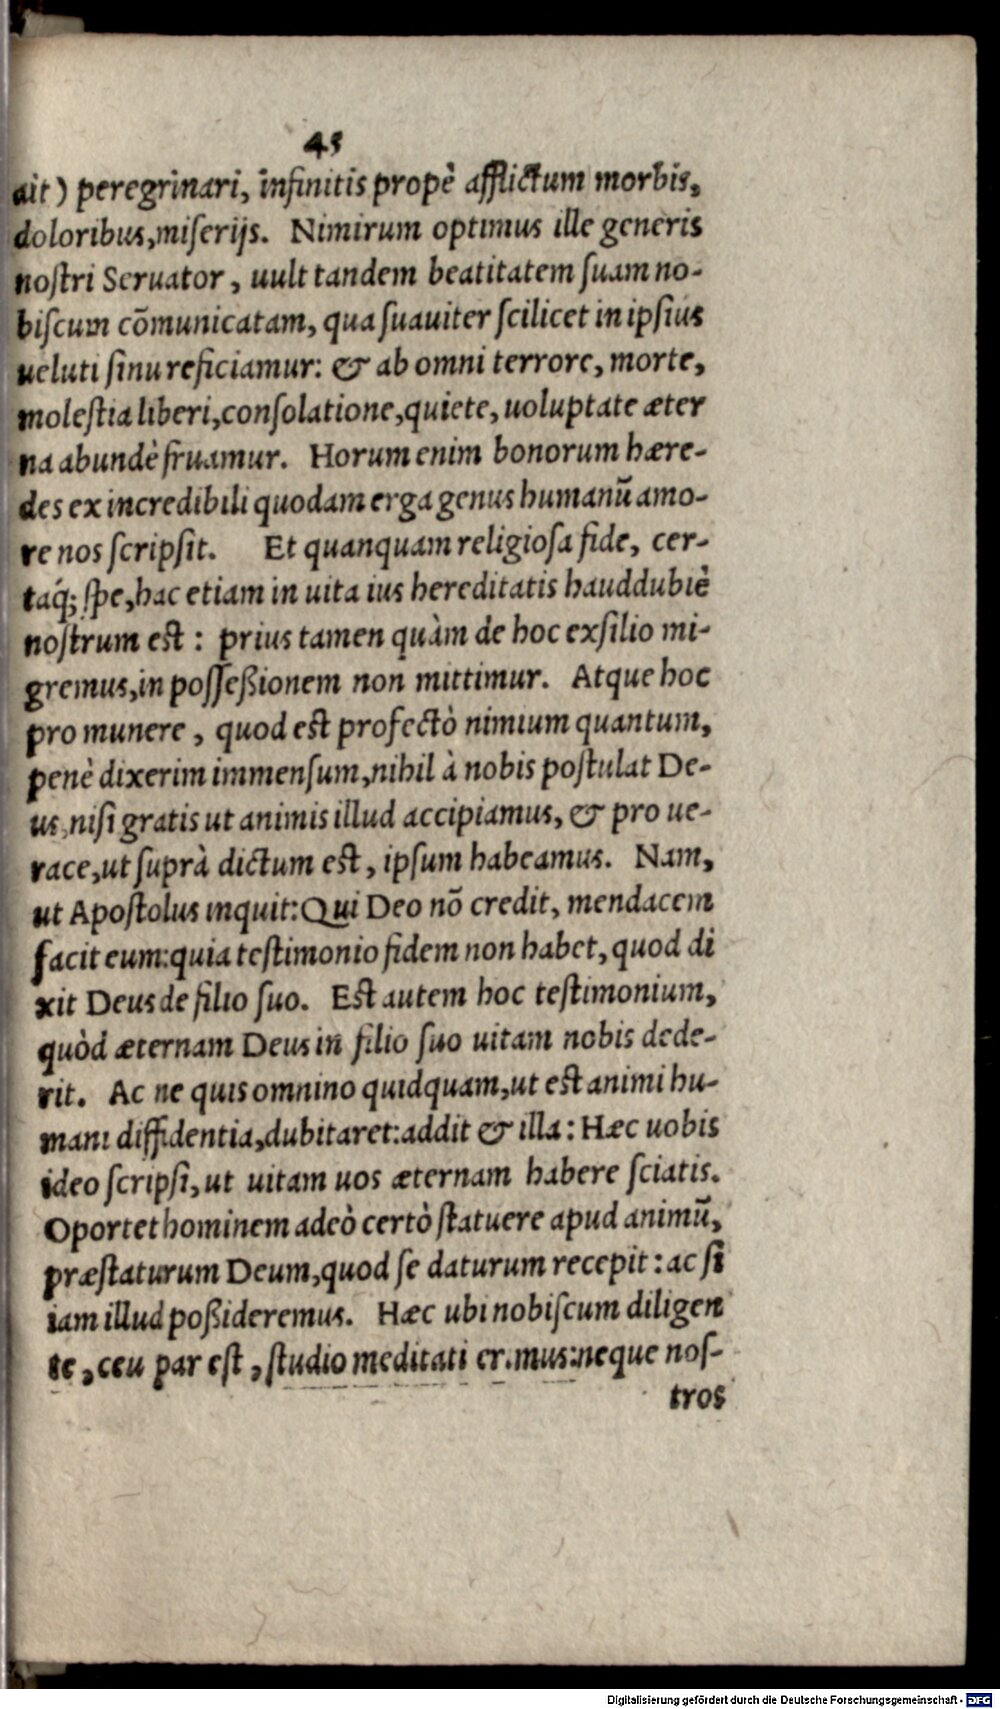 45
ait) peregrinari, infinitis propè afflictum morbis,
doloribus,miſerijs. Nimirum optimus ille generis
noſtri Seruator, uult tandem beatitatem ſuam no-
biſcum cõmunicatam, qua ſuauiter ſcilicet in ipſius
ueluti ſinu reficiamur: & ab omni terrore, morte,
moleſtia liberi,conſolatione,quiete, uoluptate æter
na abundè fruamur. Horum enim bonorum hære-
des ex incredibili quodam erga genus humanũ amo-
re nos ſcripſit. Et quanquam religioſa fide, cer-
taq́; ſpe,hac etiam in uita ius hereditatis hauddubiè
noſtrum eſt: prius tamen quàm de hoc exſilio mi-
gremus,in poſſeßionem non mittimur. Atque hoc
pro munere, quod est profectò nimium quantum,
penè dixerim immenſum,nihil à nobis poſtulat De-
us,niſi gratis ut animis illud accipiamus, & pro ue-
race,ut ſuprà dictum eſt, ipſum habeamus. Nam,
ut Apoſtolus inquit:Qui Deo nõ credit, mendacem
facit eum:quia teſtimonio fidem non habet, quod di
xit Deus de filio ſuo. Eſt autem hoc teſtimonium,
quòd æternam Deus in filio ſuo uitam nobis dede-
rit. Ac ne quis omnino quidquam,ut eſt animi hu-
mani diffidentia,dubitaret:addit & illa: Hæc uobis
ideo ſcripſi,ut uitam uos æternam habere ſciatis.
Oportet hominem adeò certò ſtatuere apud animũ,
præſtaturum Deum,quod ſe daturum recepit: ac ſi
iam illud poßideremus. Hæc ubi nobiſcum diligen
te, ceu par eſt, ſtudio meditati erimus:neque noſ-
tros
Digitalisierung gefördert durch die Deutsche Forschungsgemeinschaft - DFG